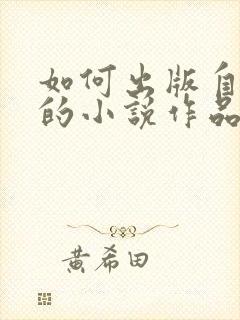 如何出版自
的小說作品
黄希田